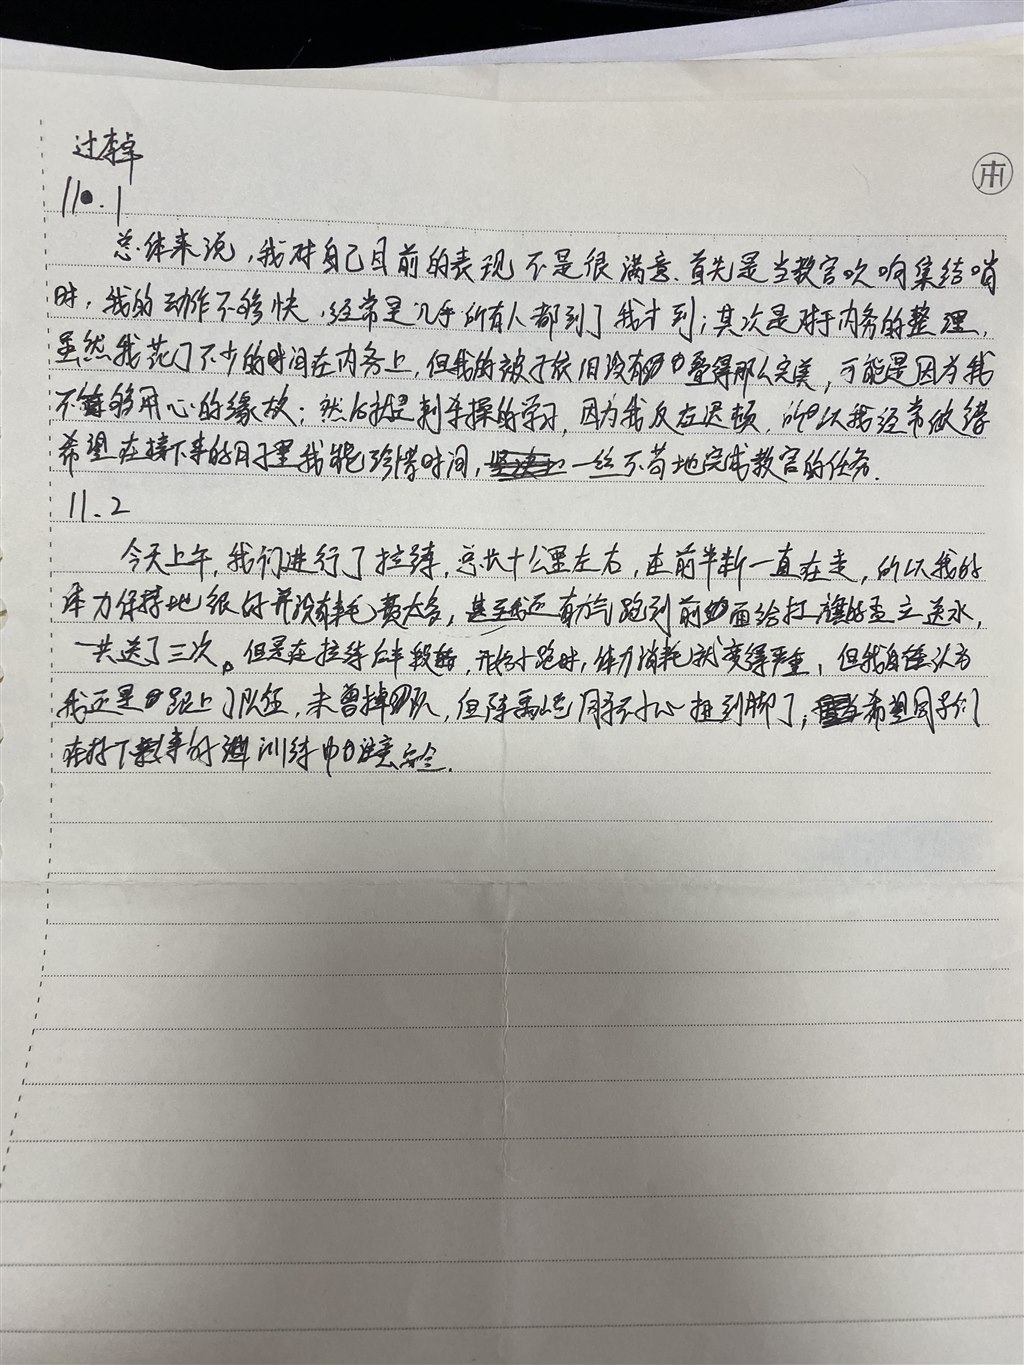 过李卓
11.1
总体来说，我对自己目前的表现不是很满意.首先是当教官吹响集结哨
时，我的动作不够快，经常是几乎所有人都到了我才到；其次是对于内务的整理，
虽然我花了不少的时间在内务上，但我的被子依旧没有叠得那么完美，可能是因为我
不够用心的缘故；然后就是刺杀操的学习，因为我反应迟顿，所以我经常做错
希望在接下来的日子里我能珍惜时间，一丝不苟地完成教官的任务.
11.2
今天上午，我们进行了拉练，总共十公里左右，在前半断一直在走，所以我的
体力保持地很好并没有耗费太多，甚至我还有力气跑到前面给扛旗的孟立送水，
一共送了三次。但是在拉练后半段，开始小跑时，体力消耗就变得严重，但我自认为
我还是跟上了队伍，未曾掉队，但陈禹同学不小心扭到脚了，希望同学们
在接下来的训练中注意安全.